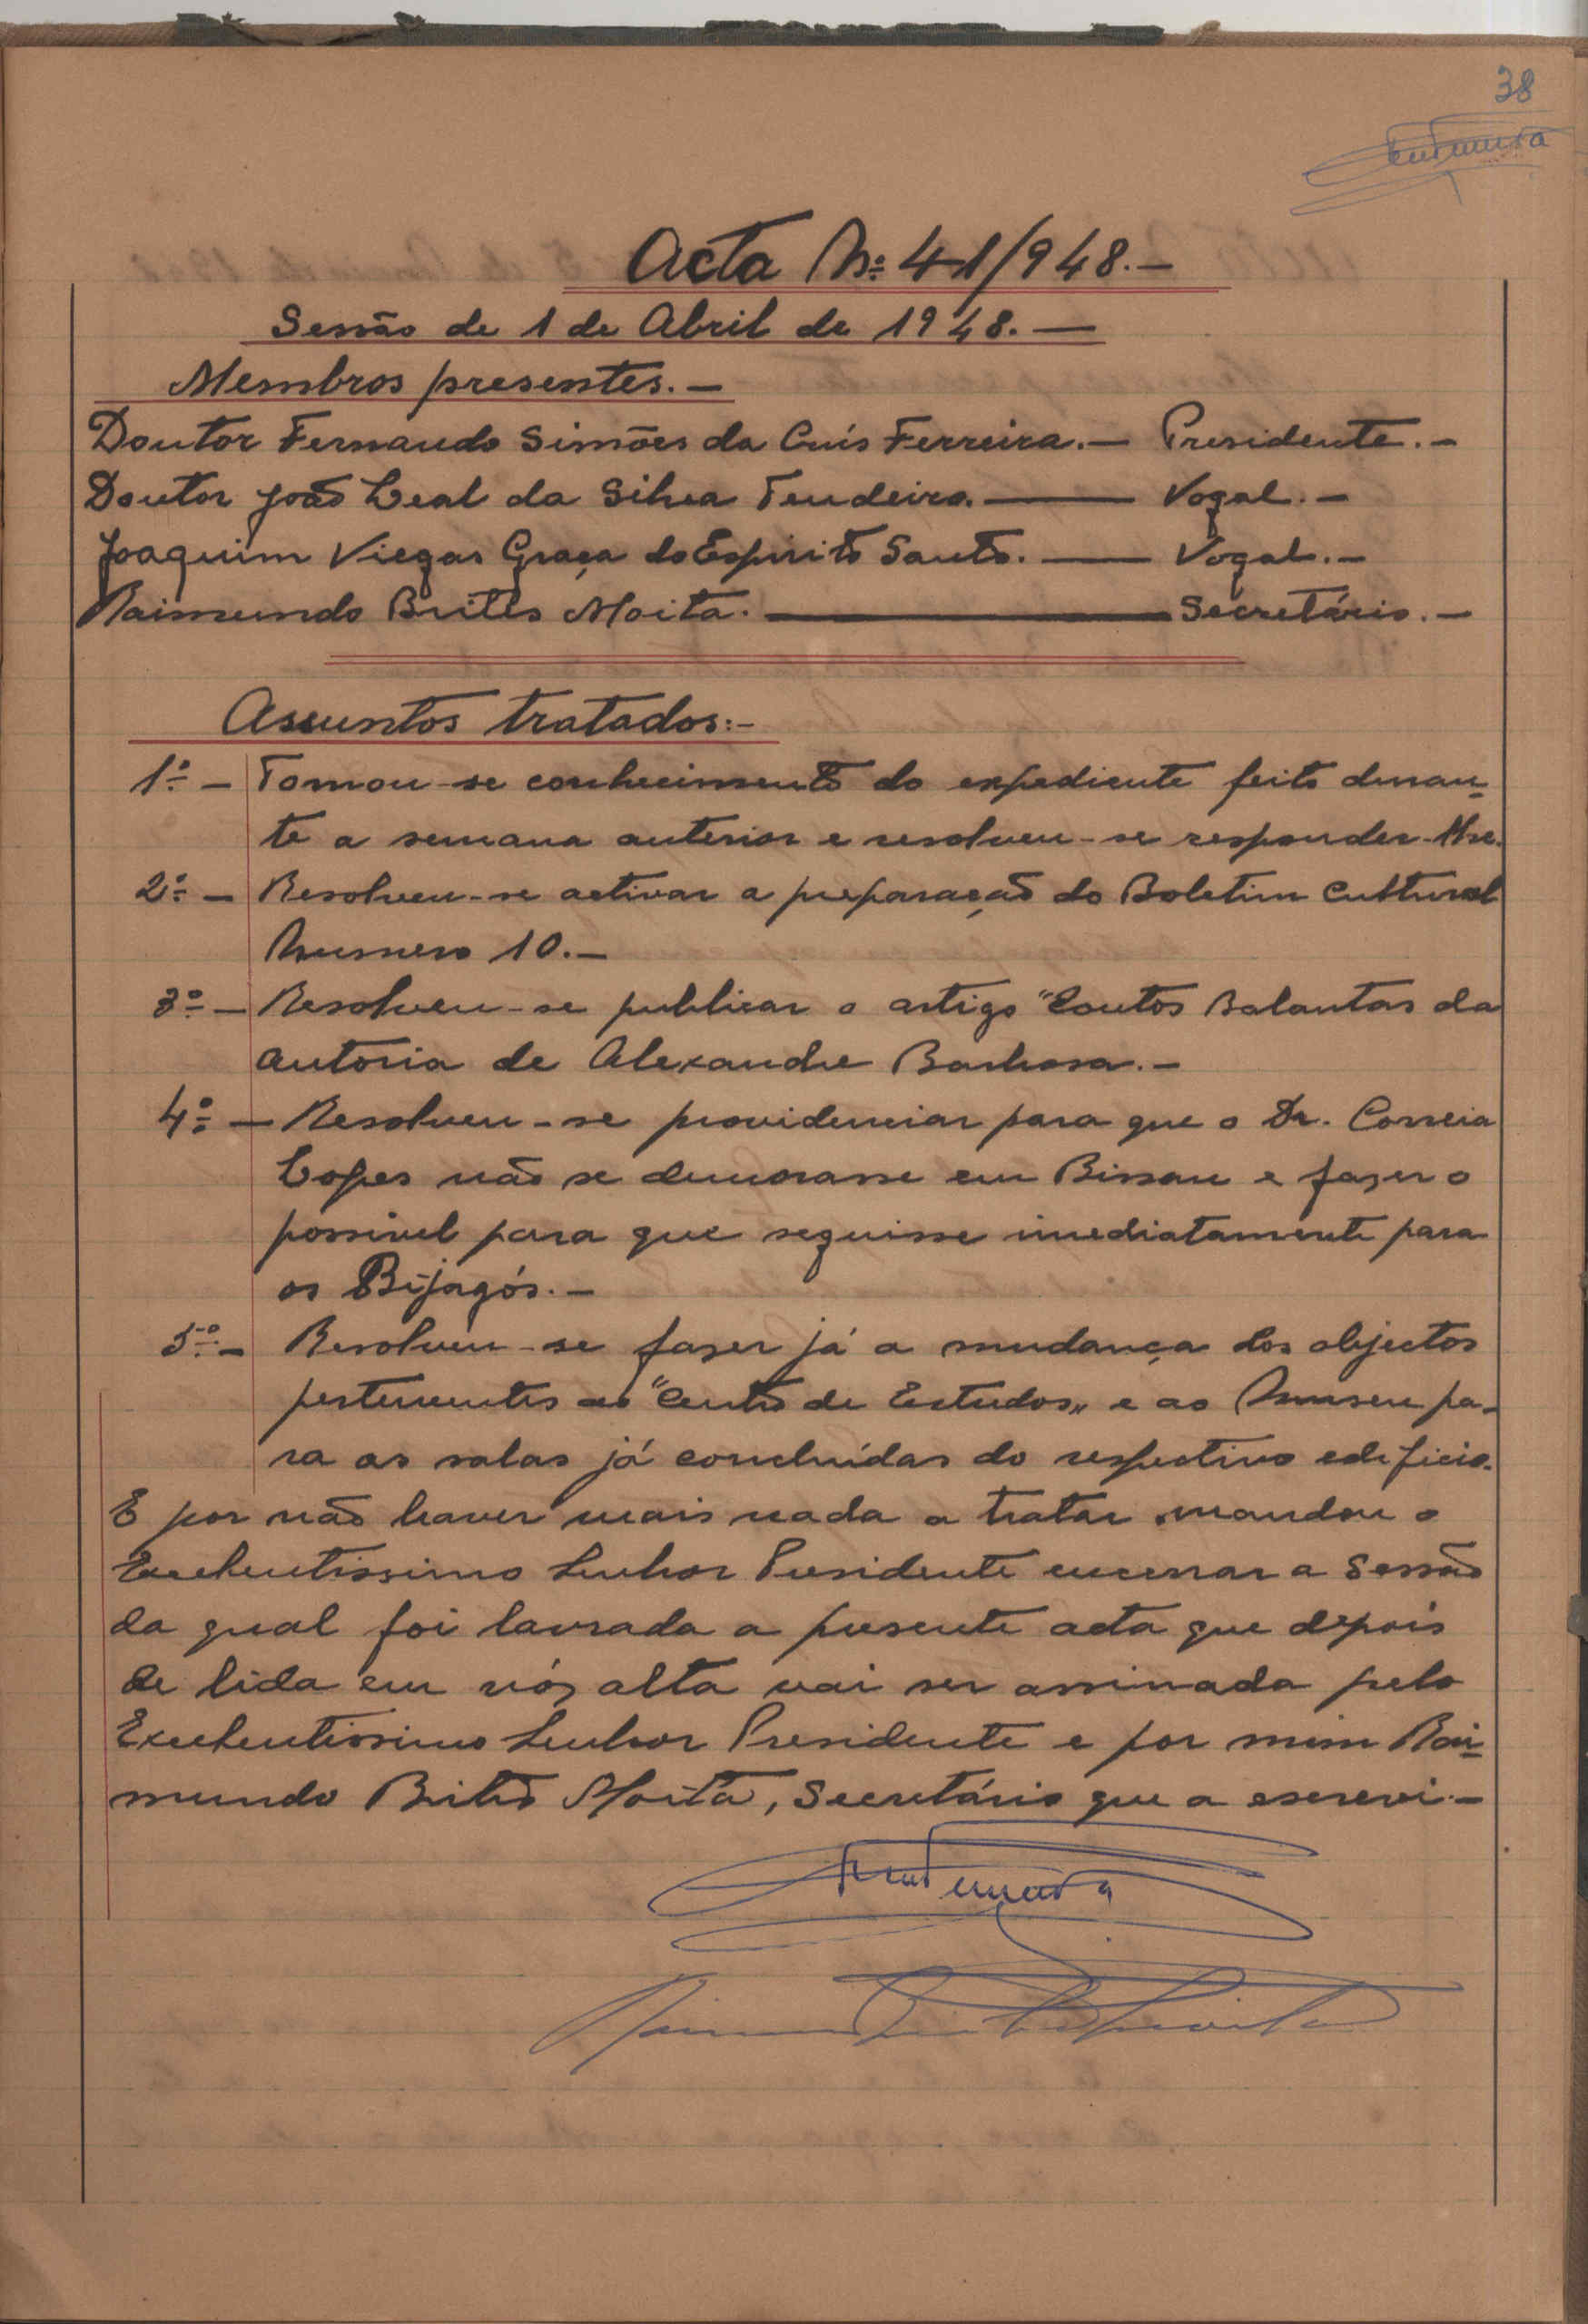 38
Acta Nº 41/948.—
Sessão de 1 de Abril de 1948.—
Membros presentes.—
Doutor Fernando Simões da Cruís Ferreira.— Presidente.—
Doutor João Leal da Silva Tendeiro.—— Vogal.—
Joaquim Viegas Graça do Espirito Santo.—— Vogal.—
Raimundo Brites Moita.—— Secretário.—
Assuntos tratados:-
1º- — Tomou-se conhecimento do expediente feito duran-
te a semana anterior e resolveu-se responder-lhe.
2º- — Resolveu-se activar a preparação do Boletim Cultural
Numero 10.—
3º- — Resolveu-se publicar o artigo "Contos Balantas da
autoria de Alexandre Barbosa.—
4º- — Resolveu-se providenciar para que o Dr. Correia
Lopes não se demorasse em Bissau e fazer o
possivel para que seguisse imediatamente para
os Bijagós.—
5º- — Resolveu-se fazer já a mudança dos objectos
pertencentes ao "Centro de Estudos" e ao Museu pa-
ra as salas já concluídas do respectivo edificio.
E por não haver mais nada a tratar mandou o
Excelentissimo Senhor Presidente encerrar a Sessão
da qual foi lavrada a presente acta que depois
de lida em vóz alta vai ser assinada pelo
Excelentissimo Senhor Presidente e por mim Rai-
mundo Brites Moita, Secretário que a escrevi.—